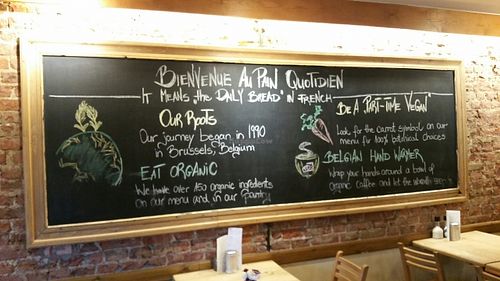 BIENVENUE AU PAIN QUOTIDIEN
IT MEANS "the DAILY BREAD" IN FRENCH
OUR ROOTS
Our journey began in 1990
in Brussels, Belgium
EAT ORGANIC
We have over 150 organic ingredients
on our menu and in our pantry
BE A PART-TIME VEGAN"
Look for the carrot symbol on our
menu for 100% botanical choices
BELGIAN HAND WARMER
Wrap your hands around a bowl of
organic coffee and let the warmth